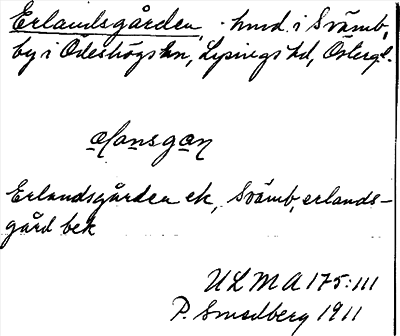 Erlandsgården, hmd. i Svämb,
by i Ödeshögs kn, Lysings hd, Östergl.
Erlandsgården ek, Svämb, erlands-
gård bek
ULMA 175:111
P. Smedberg 1911